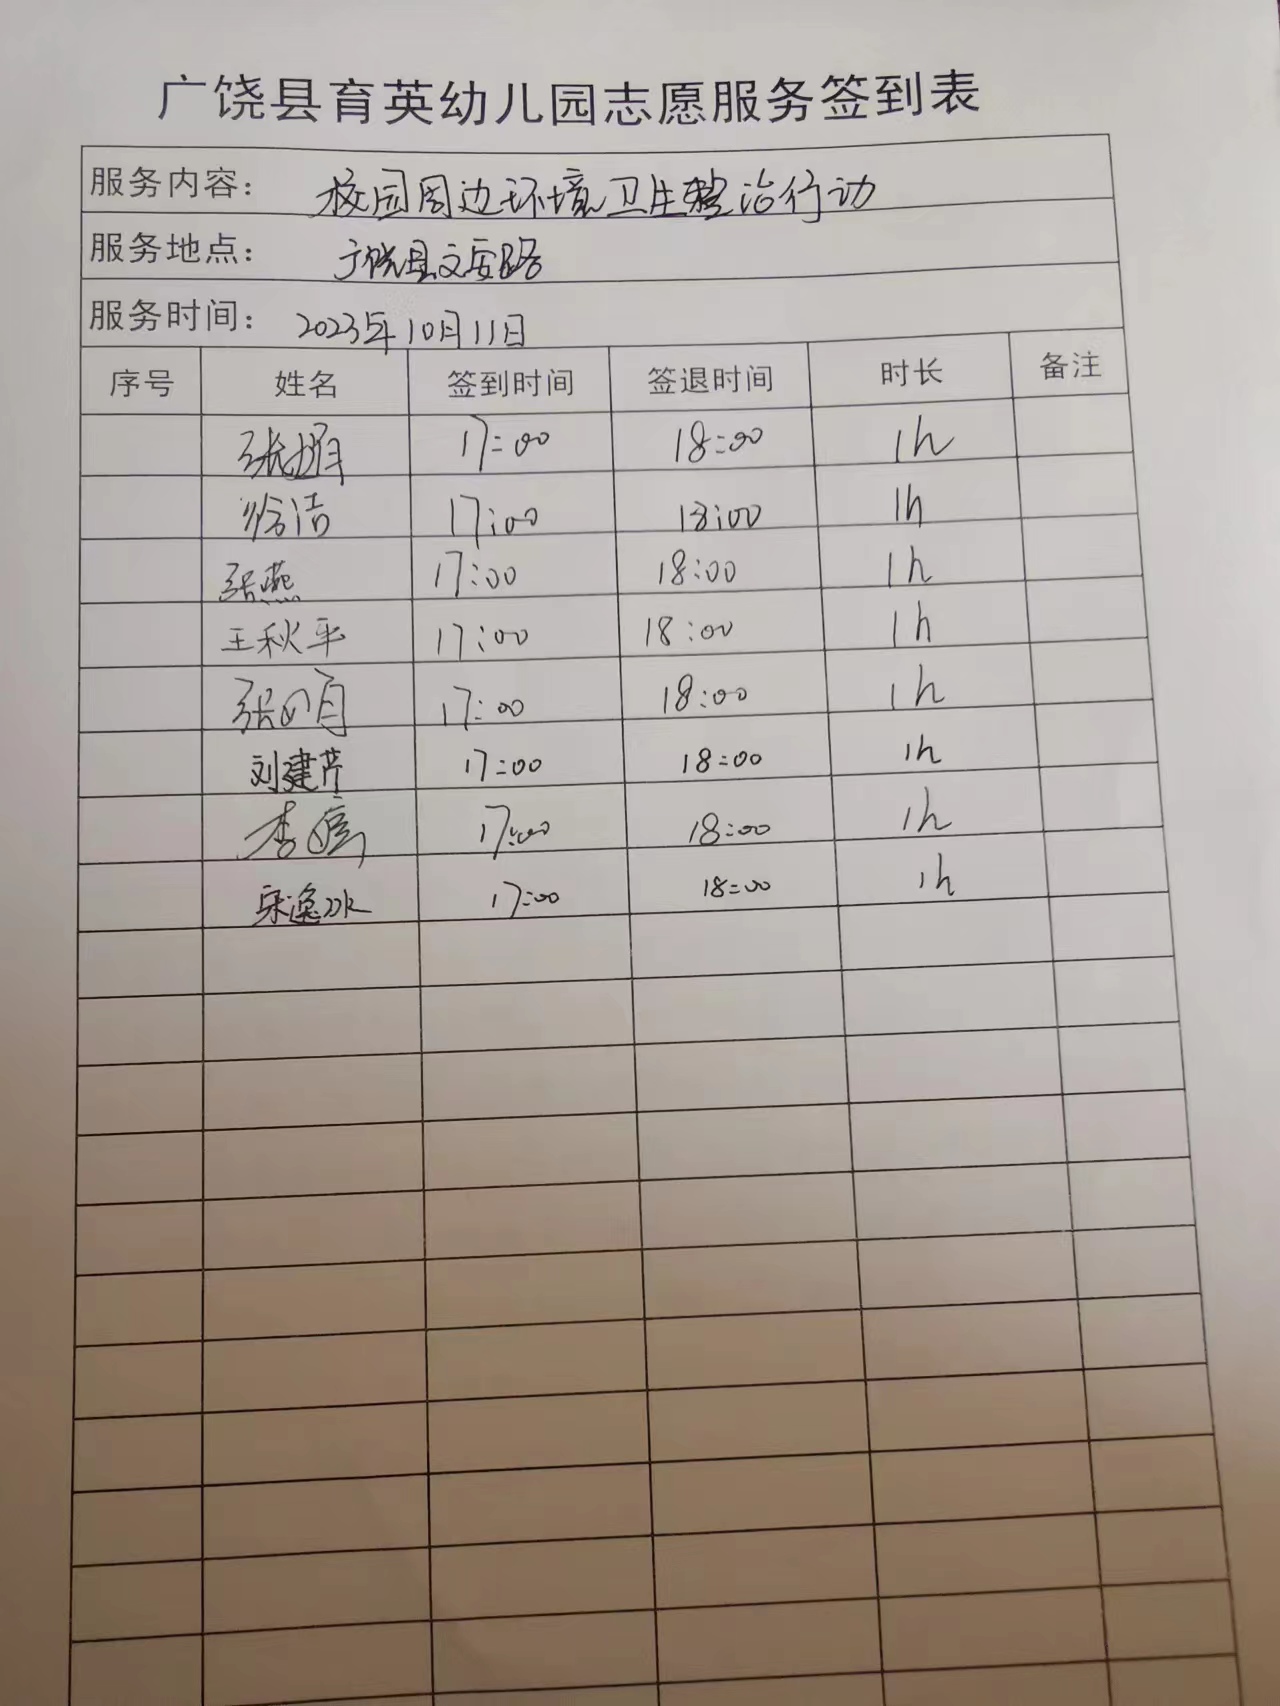 广饶县育英幼儿园志愿服务签到表
服务内容： 校园周边环境卫生整治行动
服务地点： 广饶县文安路
服务时间： 2023年10月11日
序号 姓名 签到时间 签退时间 时长 备注
张娟 17:00 18:00 1h
徐洁 17:00 18:00 1h
张燕 17:00 18:00 1h
王秋平 17:00 18:00 1h
张 17:00 18:00 1h
刘建芹 17:00 18:00 1h
李 17:00 18:00 1h
宋逸冰 17:00 18:00 1h